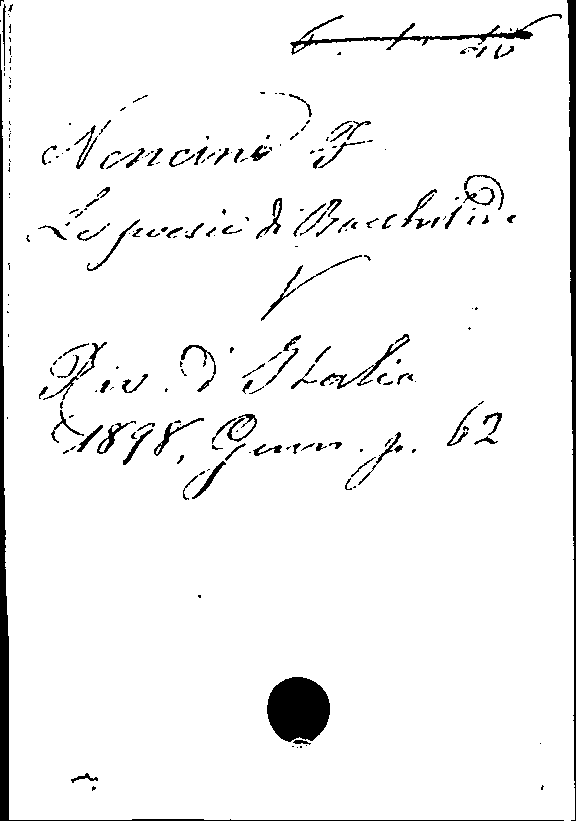 Nencini F
Le poesie di Bacchilide
V
Riv. d'Italia
1898, Genn. p. 62